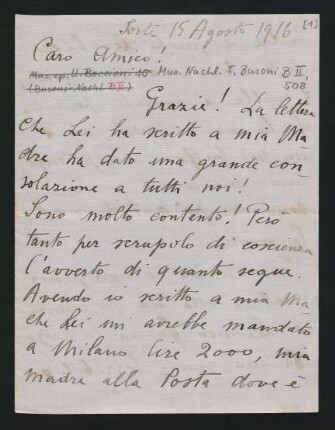 15 Agosto 1916 [1]
Caro Amico!
Mus. ep. U. Boccioni 10 Mus. Nachl. F. Busoni B II,
(Busoni-Nachl. B II) 508
Grazie! La lettera
che Lei ha scritto a mia Ma
dre ha dato una grande con
solazione a tutti noi!
Sono molto contento! Però
tanto per scrupolo di coscienza
l'avverto di quanto segue.
Avendo io scritto a mia Ma
che Lei mi avrebbe mandato
a Milano lire 2000, mia
madre alla Posta dove è